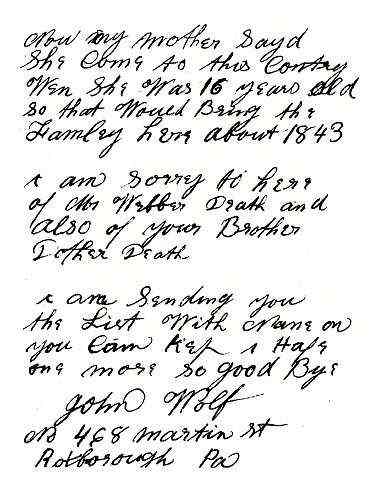 Now my mother Sayd
She Come to this Contry
Wen She Was 16 years old
so that Would Being the
Famley here about 1843
i am Sorrey to here
of Mr Webber Death and
also of your Brother
Death
i am Sending you
the List With Name on
you Can Kep i Hafe
one more so good Bye
John Wolf
No 468 martin st
Roxborough Pa